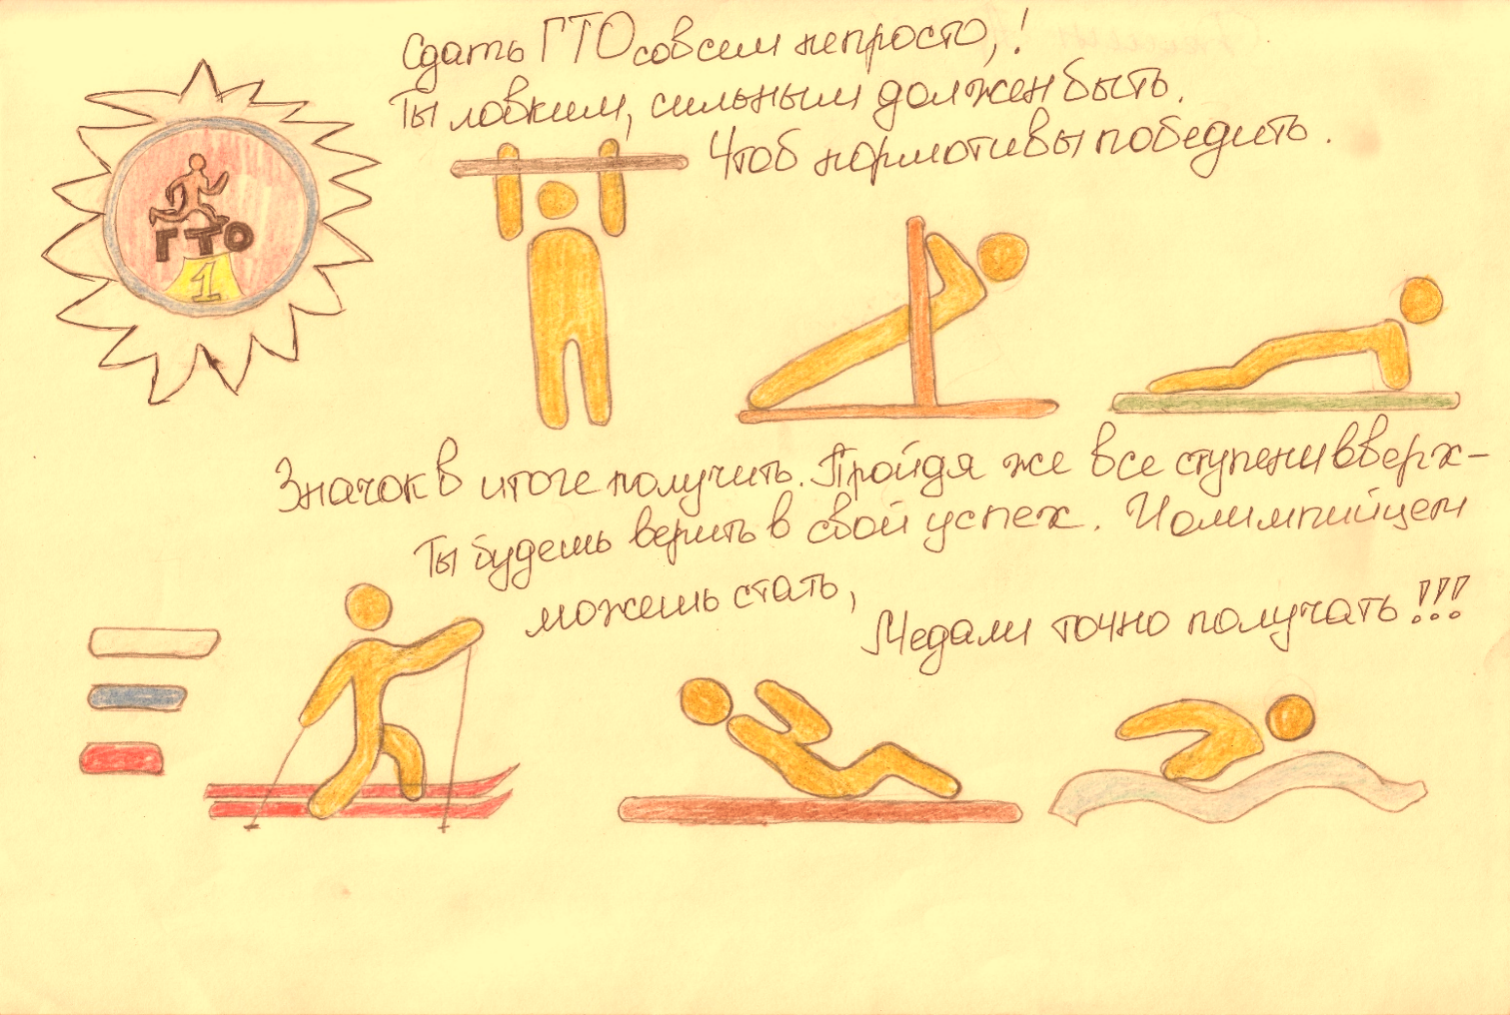 Сдать ГТО совсем непросто,!
Ты ловким, сильным должен быть.
Чтоб нормотивы победить.
ГТО
1
Значок в итоге получить. Пройдя же все ступени вверх-
Ты будешь верить в свой успех. И олимпийцем
можешь стать,
Медали точно получать!!!